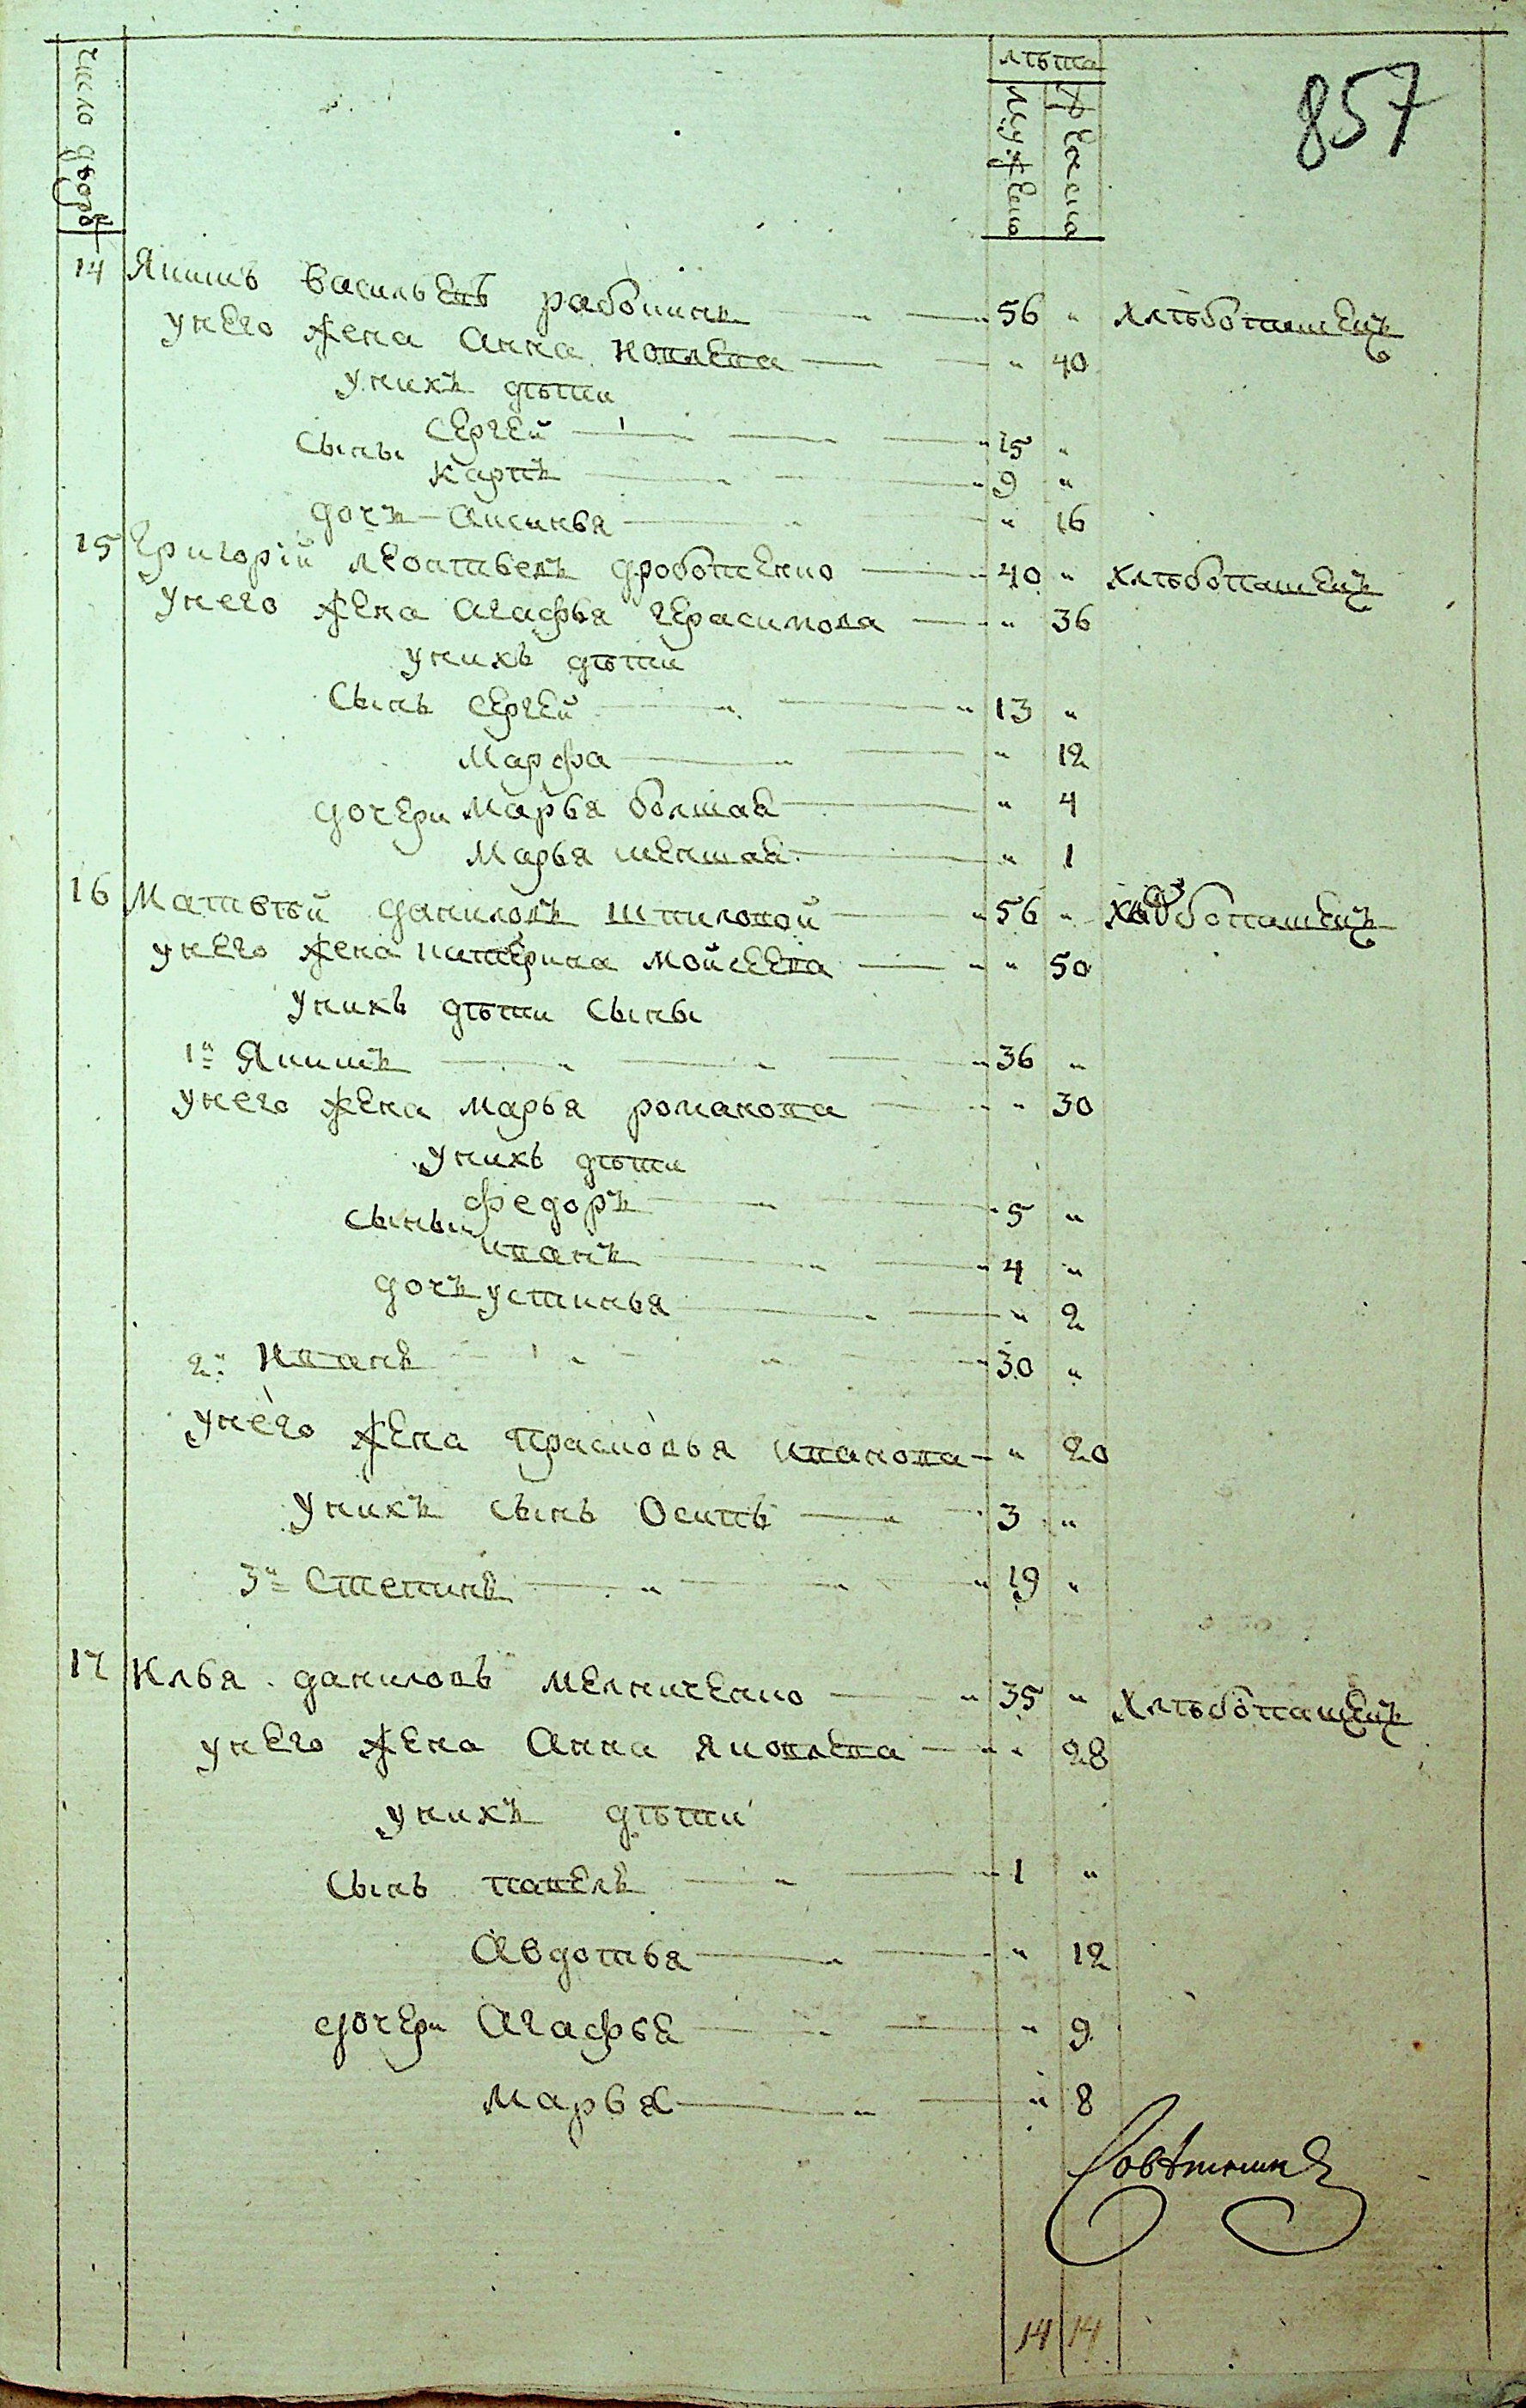 857
число дворовъ
лѣта
мужеско
женско
14 Якимъ Васильевъ рабошик 56 " хлѣбопашецъ
у него жена Анна Иовлева " 40
у нихъ дѣти
Сергей " 15 "
сыны
Карпъ " 9 "
дочь Аксинья " 16
15 Григорій Леонтьевъ дроботенко 40 " хлѣбопашецъ
у него жена Агафья Герасимова " 36
у нихъ дѣти
сынъ Сергей " 13 "
Марфа " 12
дочери Марья болшая " 4
Марья меншая " 1
16 Матвѣй даниловъ шпиловой " 56 " хлѣбопашецъ
у него жена катерина Мойсеева " 50
у нихъ дѣти сыны
1й Якимъ " 36 "
у него жена Марья романова " 30
у нихъ дѣти
Федоръ " 5 "
сыны
иванъ " 4 "
дочъ устинья " 2
2й Иванъ " 30 "
у него жена Прасковья иванова " 20
у нихъ сынъ Осипъ " 3 "
3й Степанъ " 19 "
17 Илья даниловъ мелниченко " 35 " хлѣбопашецъ
у него жена Анна яковлева " 28
у нихъ дѣти
сынъ павелъ " 1 "
Авдотья " 12
дочери Агафья " 9
Марья " 8
Совѣтникъ
14 14